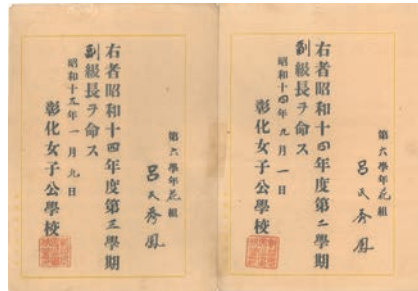 第六學年花組
呂氏秀鳳
右者昭和十四年度第二學期
副級長ヲ命ス
昭和十四年九月一日
彰化女子公學校
第六學年花組
呂氏秀鳳
右者昭和十四年度第三學期
副級長ヲ命ス
昭和十五年一月九日
彰化女子公學校